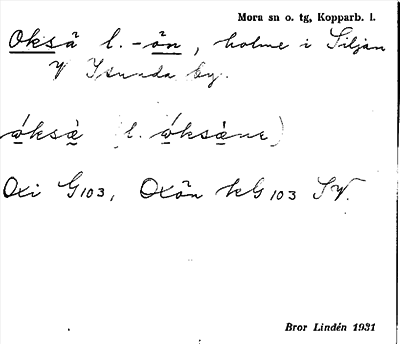 Mora sn o. tg, Kopparb. l.
Oksä l. -ön, holme i Siljan
V Isunda by.
ǿksä̀ (l. ǿksä̀ne)
Oxi G103, Oxön kG103 SV.
Bror Lindén 1931